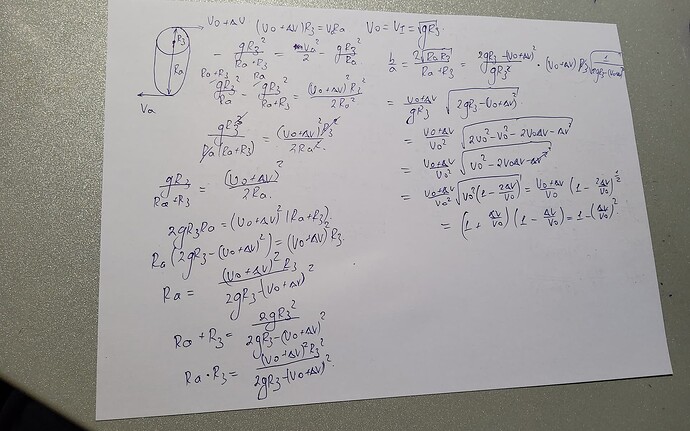 V₀+ΔV
(V₀+ΔV)R₃=VaRa V₀=V₁=√gR₃
R₃
Ra
Va
-gR₃²/(Ra+R₃) = V₀²/2 - gR₃²/Ra
gR₃²/Ra - gR₃²/(Ra+R₃) = (V₀+ΔV)²R₃²/2Ra²
gR₃³/Ra(Ra+R₃) = (V₀+ΔV)²R₃²/2Ra²
gR₃/(Ra+R₃) = (V₀+ΔV)²/2Ra
2gR₃Ra=(V₀+ΔV)²(Ra+R₃)
Ra(2gR₃-(V₀+ΔV)²)=(V₀+ΔV)²R₃
Ra=(V₀+ΔV)²R₃/2gR₃-(V₀+ΔV)²
Ra+R₃=2gR₃²/2gR₃-(V₀+ΔV)²
Ra·R₃=(V₀+ΔV)²R₃²/2gR₃-(V₀+ΔV)²
b/a=2√RaR₃/(Ra+R₃)=2gR₃-(V₀+ΔV)²/gR₃²·(V₀+ΔV)R₃
=V₀+ΔV/gR₃ √2gR₃-(V₀+ΔV)²
=V₀+ΔV/V₀² √2V₀²-V₀²-2V₀ΔV-ΔV²
=V₀+ΔV/V₀² √V₀²-2V₀ΔV-ΔV²
=V₀+ΔV/V₀² √V₀²(1-2ΔV/V₀)=V₀+ΔV/V₀(1-2ΔV/V₀)^½
=(1+ΔV/V₀)(1-ΔV/V₀)=1-(ΔV/V₀)²